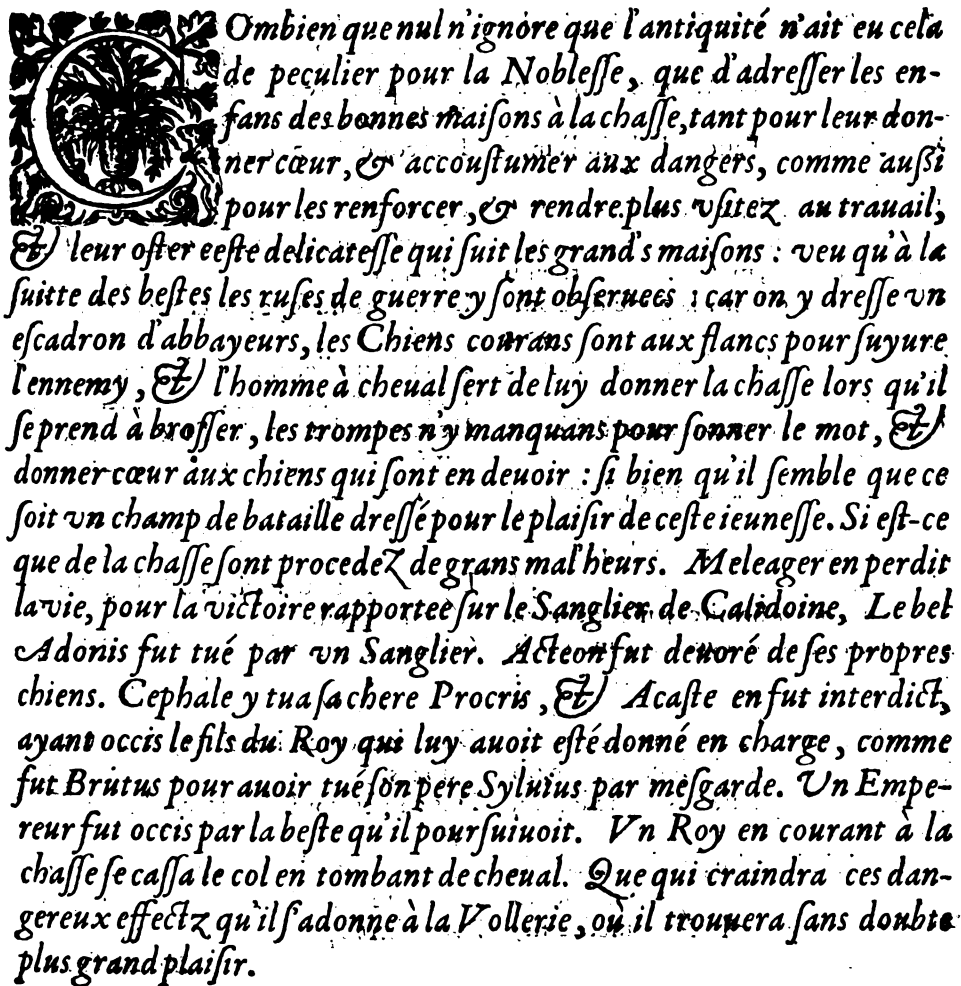 COmbien que nul n'ignore que l'antiquité n'ait eu cela
de peculier pour la Nobleſſe, que d'adreſſer les en-
fans des bonnes maiſons à la chaſſe, tant pour leur don-
ner cœur, & accouſtumer aux dangers, comme auſsi
pour les renforcer, & rendre plus vſitez au trauail,
& leur oſter ceſte delicateſſe qui ſuit les grand's maiſons : veu qu'à la
ſuitte des beſtes les ruſes de guerre y ſont obſeruees : car on y dreſſe vn
eſcadron d'abbayeurs, les Chiens courans ſont aux flancs pour ſuyure
l'ennemy, & l'homme à cheual ſert de luy donner la chaſſe lors qu'il
ſe prend à broſſer, les trompes n'y manquans pour ſonner le mot, &
donner cœur aux chiens qui ſont en deuoir : ſi bien qu'il ſemble que ce
ſoit vn champ de bataille dreſſé pour le plaiſir de ceſte ieuneſſe. Si eſt-ce
que de la chaſſe ſont procedez de grans mal'heurs. Meleager en perdit
la vie, pour la victoire rapportee ſur le Sanglier de Calidoine, Le bel
Adonis fut tué par vn Sanglier. Acteon fut deuoré de ſes propres
chiens. Cephale y tua ſa chere Procris, & Acaſte en fut interdict,
ayant occis le fils du Roy qui luy auoit eſté donné en charge, comme
fut Brutus pour auoir tué ſon pere Syluius par meſgarde. Un Empe-
reur fut occis par la beſte qu'il pourſuiuoit. Vn Roy en courant à la
chaſſe ſe caſſa le col en tombant de cheual. Que qui craindra ces dan-
gereux effectz qu'il ſ'adonne à la Vollerie, où il trouuera ſans doubte
plus grand plaiſir.